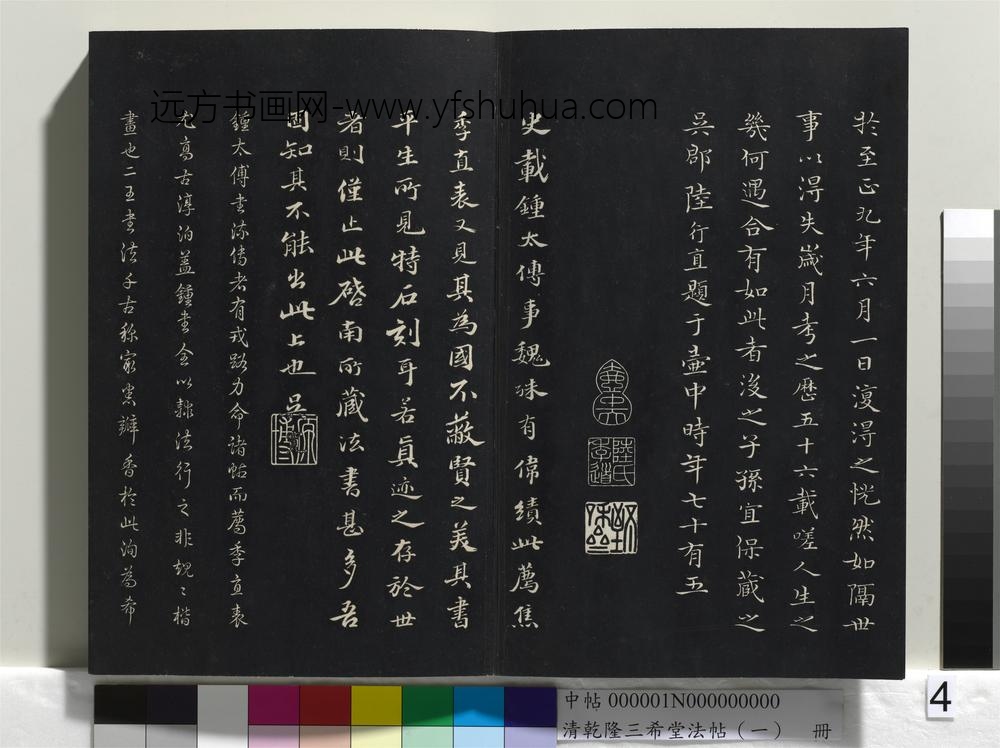 远方书画网-www.yfshuhua.com
於至正九年六月一日復得之恍然如隔世
事以得失歲月考之歷五十六載嗟人生之
幾何遇合有如此者後之子孫宜保藏之
吳郡陸行直題于壺中時年七十有五
陸氏
史載鍾太傅事魏殊有偉績此薦焦
季直表又見其為國不蔽賢之美其書
平生所見特石刻耳若真迹之存於世
者則僅止此啓南所藏法書甚多吾
固知其不能出此上也吳
鍾太傅書流傳者有戎路力命諸帖而薦季直表
尤高古淳泊蓋鍾書全以隸法行之非規〻楷
畫也二王書法千古稱宗瓣香於此洵為希
中帖 000001N000000000
清乾隆三希堂法帖（一） 冊
4